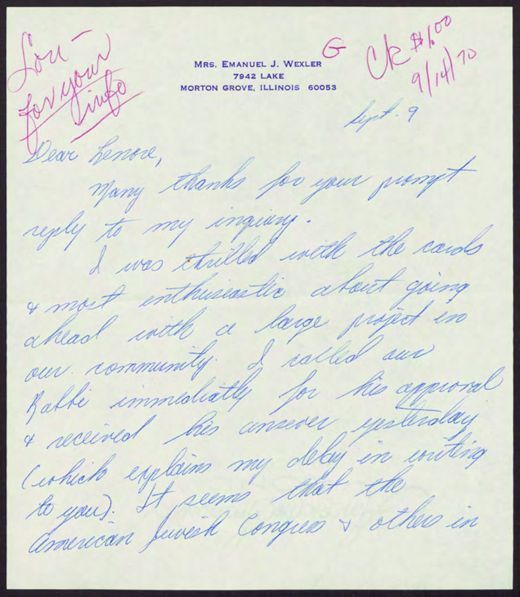 Lou -
for your
info
G
Ck $1.00
9/14/70
MRS. EMANUEL J. WEXLER
7942 LAKE
MORTON GROVE, ILLINOIS 60053
Sept. 9
Dear Lenore,
Many thanks for your prompt
reply to my inquiry.
I was thrilled with the cards
& most enthusiastic about going
ahead with a large project in
our community. I called our
Rabbi immediatly for his approval
& received his answer yesterday
(which explains my delay in writing
to you). It seems that the
American Jewish Congress & others in